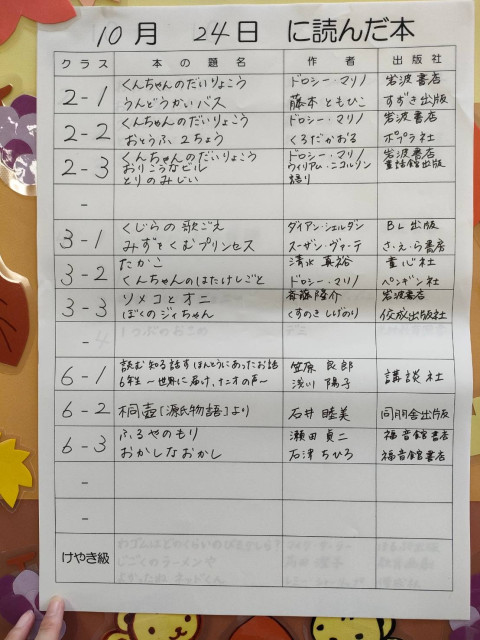 10月 24日 に読んだ本
クラス 本の題名 作者 出版社
2-1 くんちゃんのだいりょこう ドロシー・マリノ 岩波書店
うんどうかいバス 藤本ともひこ すずき出版
2-2 くんちゃんのだいりょこう ドロシー・マリノ 岩波書店
おとうふ2ちょう くろだかおる ポプラ社
2-3 くんちゃんのだいりょこう ドロシー・マリノ 岩波書店
おりこうなビル ウィリアム・ニコルソン 童話館出版
とりのみじい 語り
-
3-1 くじらの歌ごえ ダイアン・シェルダン BL出版
みずをくむプリンセス スーザン・ヴァーデ さ・え・ら書房
3-2 たかこ 清水真裕 童心社
くんちゃんのはたけしごと ドロシー・マリノ ペンギン社
3-3 ソメコとオニ 斎藤隆介 岩波書店
ぼくのジィちゃん くすのきしげのり 佼成出版社
-
6-1 読む知る話す ほんとうにあったお話 笠原良郎 講談社
6年生 〜世界に届け、ナオの声〜 浅川陽子
6-2 桐壺[源氏物語]より 石井睦美 同朋舎出版
6-3 ふるやのもり 瀬田貞二 福音館書店
おかしなおかし 石津ちひろ 福音館書店
-
-
けやき級